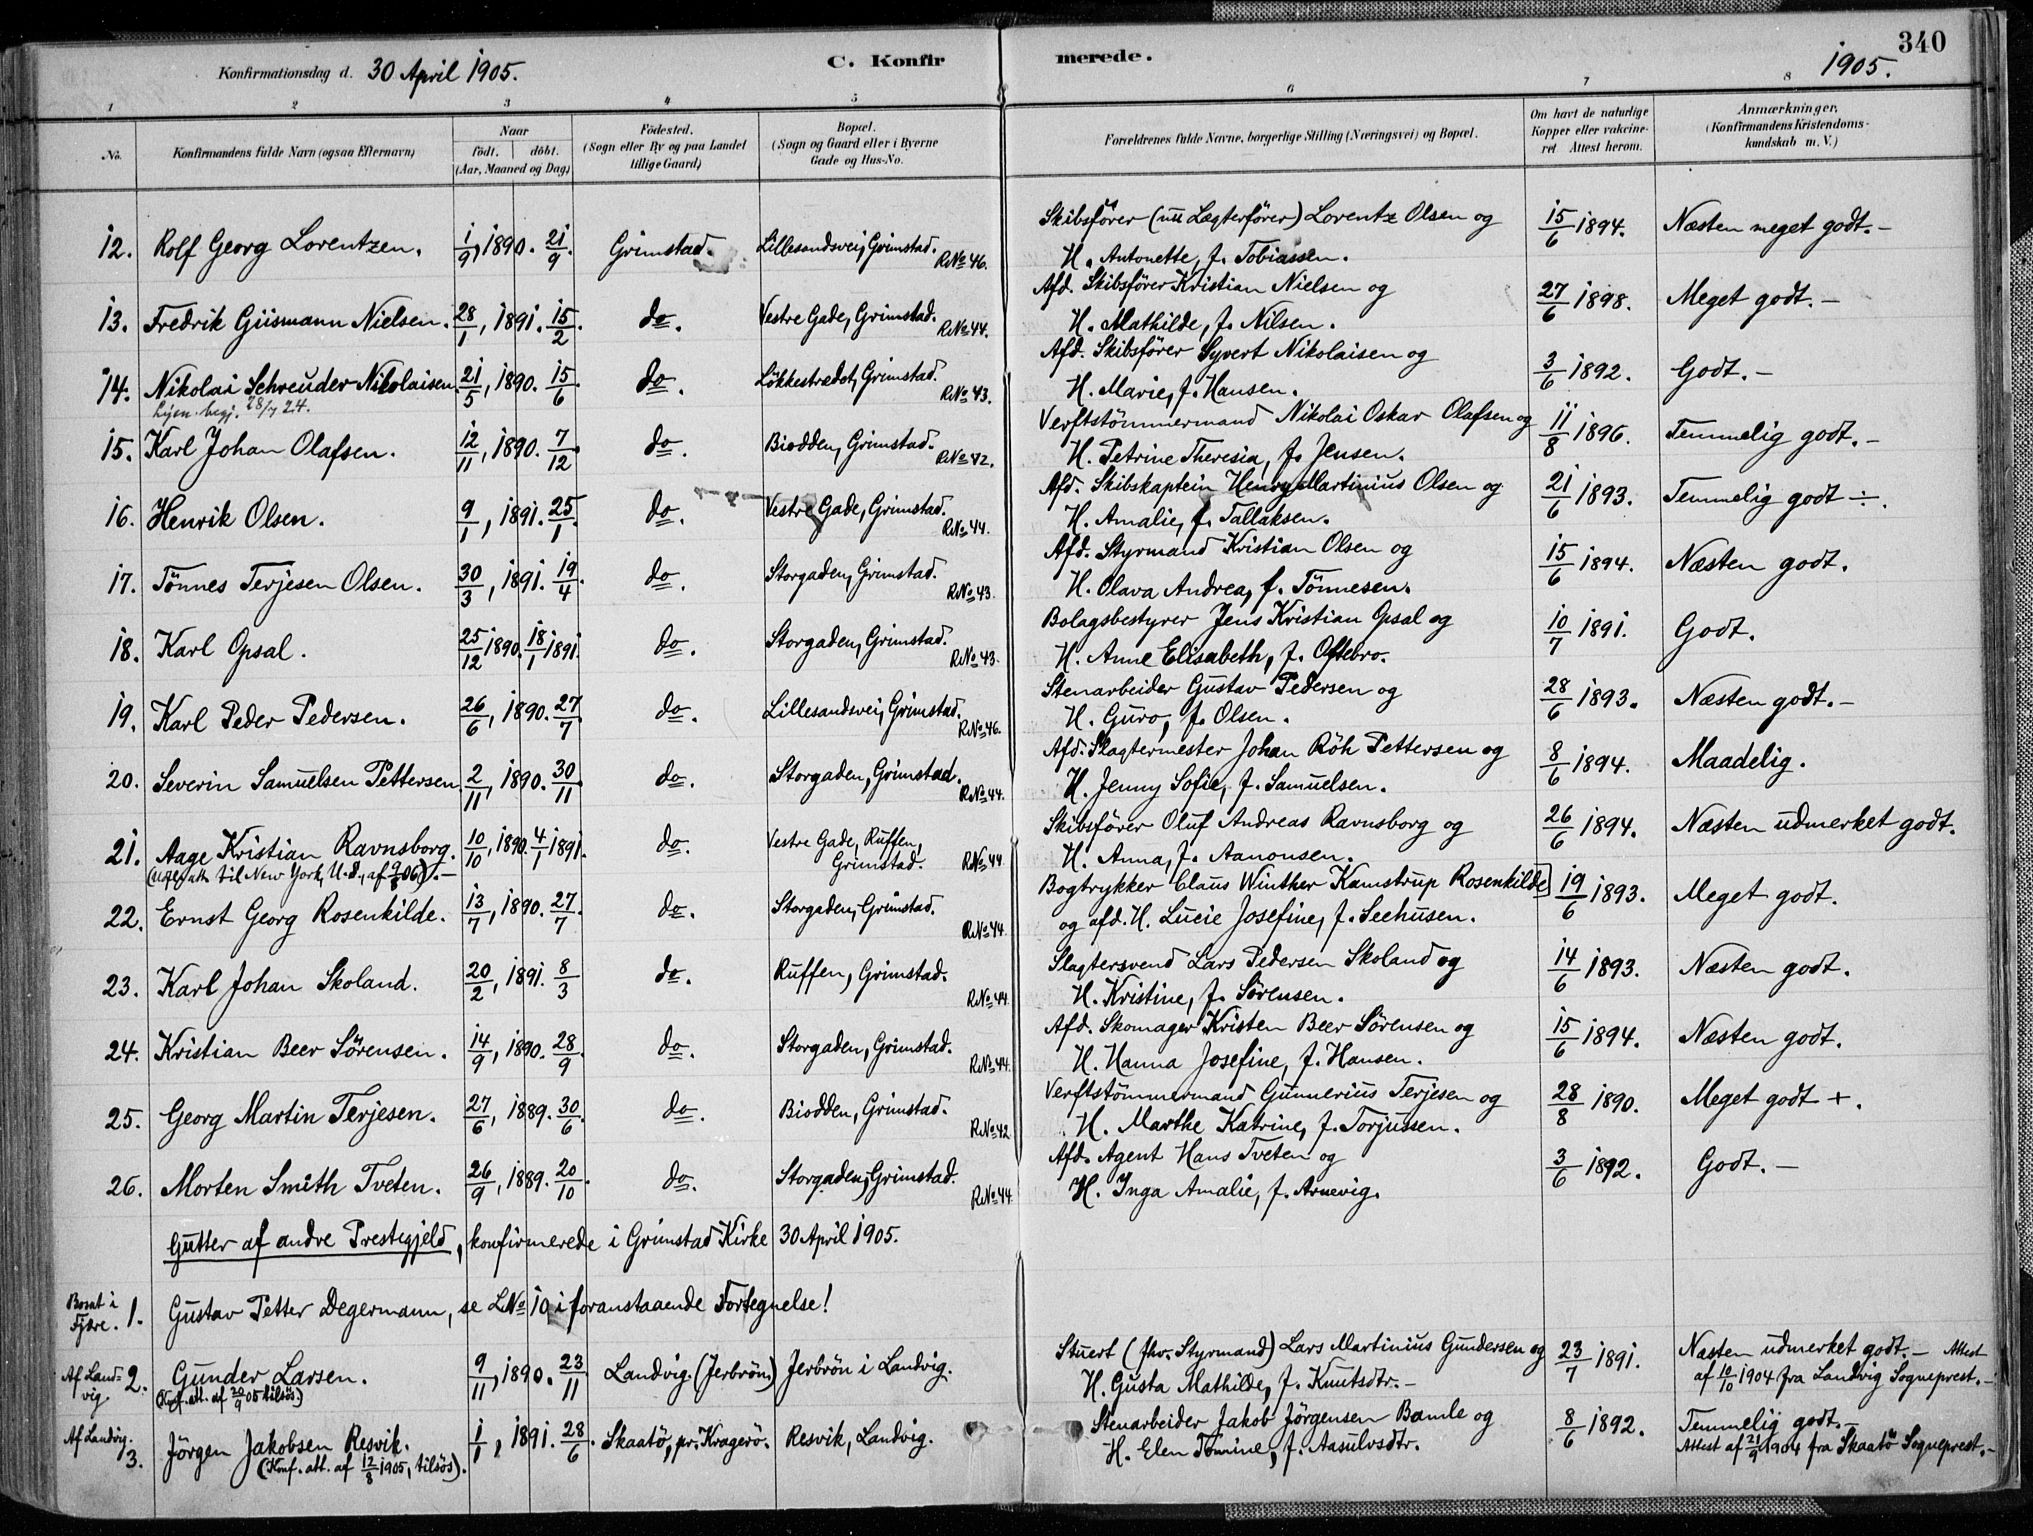 340
Konfirmationsdag d. 30 April 1905. C. Konfirmerede. 1905.
1 2 3 4 5 6 7 8
No. Konfirmandens fulde Navn (ogsaa Efternavn) Naar födt. döbt. (Aar, Maaned og Dag) Födested. (Sogn eller By og paa Landet tillige Gaard) Bopæl. (Sogn og Gaard eller i Byerne Gade og Hus-No. Forældrenes fulde Navne, borgerlige Stilling (Næringsvei) og Bopæl. Om havt de naturlige Kopper eller vakcineret Attest herom. Anmærkninger. (Konfirmandens Kristendomskundskab m. V.)
12. Rolf Georg Lorentzen. 1/9, 1890. 21/9. Grimstad. Lillesandsvei, Grimstad. R.No 46. Skibsfører (nu Lægterfører) Lorentz Olsen og 15/6 1894. Næsten meget godt.-
H. Antonette, f. Tobiassen.
13. Fredrik Giismann Nielsen. 28/1, 1891. 15/2. do. Vestre Gade, Grimstad. R.No 44. Afd. Skibsfører Kristian Nielsen og 27/6 1898. Meget godt.-
H. Mathilde, f. Nilsen.
14. Nikolai Schreuder Nikolaisen 21/5, 1890. 15/6. do. Løkkestrædet, Grimstad. R.No 43. Afd. Skibsfører Syvert Nikolaisen og 3/6 1892. Godt.-
28/7 24. H. Marie, f. Hansen.
15. Karl Johan Olafsen. 12/11, 1890. 7/12. do. Biodden, Grimstad. R.No 42. Verftstömmermand Nikolai Oskar Olafsen og 11/8 1896. Temmelig godt.-
H. Petrine Theresia, f. Jensen.
16. Henrik Olsen. 9/1, 1891. 25/1. do. Vestre Gade, Grimstad. R.No 44. Afd. Skibskaptein Henry Martinius Olsen og 21/6 1893. Temmelig godt ÷.
H. Amalie, f. Tallaksen.
17. Tönnes Terjesen Olsen. 30/3, 1891. 19/4. do. Storgaden, Grimstad. R.No 43. Afd. Styrmand Kristian Olsen og 15/6 1894. Næsten godt.
H. Olava Andrea, f. Tönnesen.
18. Karl Opsal. 25/12 1890. 18/1 1891. do. Storgaden, Grimstad. R.No 43. Bolagsbestyrer Jens Kristian Opsal og 10/7 1891. Godt.
H. Anne Elisabeth, f. Oftebro.
19. Karl Peder Pedersen. 26/6, 1890. 27/7. do. Lillesandsvei, Grimstad. R.No 46. Stenarbeider Gustav Pedersen og 28/6 1893. Næsten godt.-
H. Guro, f. Olsen.
20. Severin Samuelsen Pettersen 2/11, 1890. 30/11. do. Storgaden, Grimstad. R.No 44. Afd. Slagtermester Johan Röh Pettersen og 8/6 1894. Maadelig.
H. Jenny Sofie, f. Samuelsen.
21. Aage Kristian Ravnsborg. 10/10, 1890. 4/1 1891. do. Vestre Gade, Ruffen, Grimstad. R.No 44. Skibsfører Oluf Andreas Ravnsborg og 26/6 1894. Næsten udmerket godt.
til New York, U.S., af H. Anna, f. Aanonsen.
22. Ernst Georg Rosenkilde. 13/7, 1890. 27/7. do. Storgaden, Grimstad. R.No 44. Bogtrykker Claus Winther Kamstrup Rosenkilde 19/6 1893. Meget godt.
og afd. H. Lucie Josefine, f. Seehusen.
23. Karl Johan Skoland. 20/2, 1891. 8/3 do. Ruffen, Grimstad. R.No 44. Slagtersvend Lars Pedersen Skoland og 14/6 1893. Næsten godt.
H. Kristine, f. Sörensen.
24. Kristian Beer Sörensen. 14/9, 1890. 28/9. do. Storgaden, Grimstad. R.No 44. Afd. Skomager Kristen Beer Sörensen og 15/6 1894. Næsten godt.
H. Hanna Josefine, f. Hansen.
25. Georg Martin Terjesen. 27/6, 1889. 30/6. do. Biodden, Grimstad. R.No 42 Verftstömmermand Gunnerius Terjesen og 28/8 1890. Meget godt +.
H. Marthe Katrine, f. Torjussen.
26. Morten Smith Tveten. 26/9, 1889. 20/10. do. Storgaden, Grimstad. R.No 44 Afd. Agent Hans Tveten og 3/6 1892. Godt.-
H. Inga Amalie, f. Arnevig.
Gutter af andre Prestegjeld, konfirmerede i Grimstad Kirke 30 April 1905.
Bosat i Fjære. 1. Gustav Petter Degermann, se LNo 10 i foranstaaende Fortegnelse!
Af Landvig. 2. Gunder Larsen. 9/11, 1890. 23/11 Landvig. (Jerbrön.) Jerbrön i Landvig. Stuert (fhv. Styrmand) Lars Martinius Gundersen og 23/7 1891. Næsten udmerket godt.- Attest
(Konf. att. af 20/9 05 tilsös.) H. Gusta Mathilde, f. Knutsdtr.- af 10/10 1904 fra Landvig Sogneprest.-
Af Landvig. 3. Jörgen Jakobsen Resvik. 1/1, 1891. 28/6. Skaatö, pr. Kragerö. Resvik, Landvig. Stenarbeider Jakob Jörgensen Bamle og 8/6 1892. Temmelig godt.-
(Konf. att. af 12/8 1905, tilsös). H. Elen Tomine, f. Aasulvsdtr. Attest af 21/9 1904 fra Skaatö Sogneprest.-